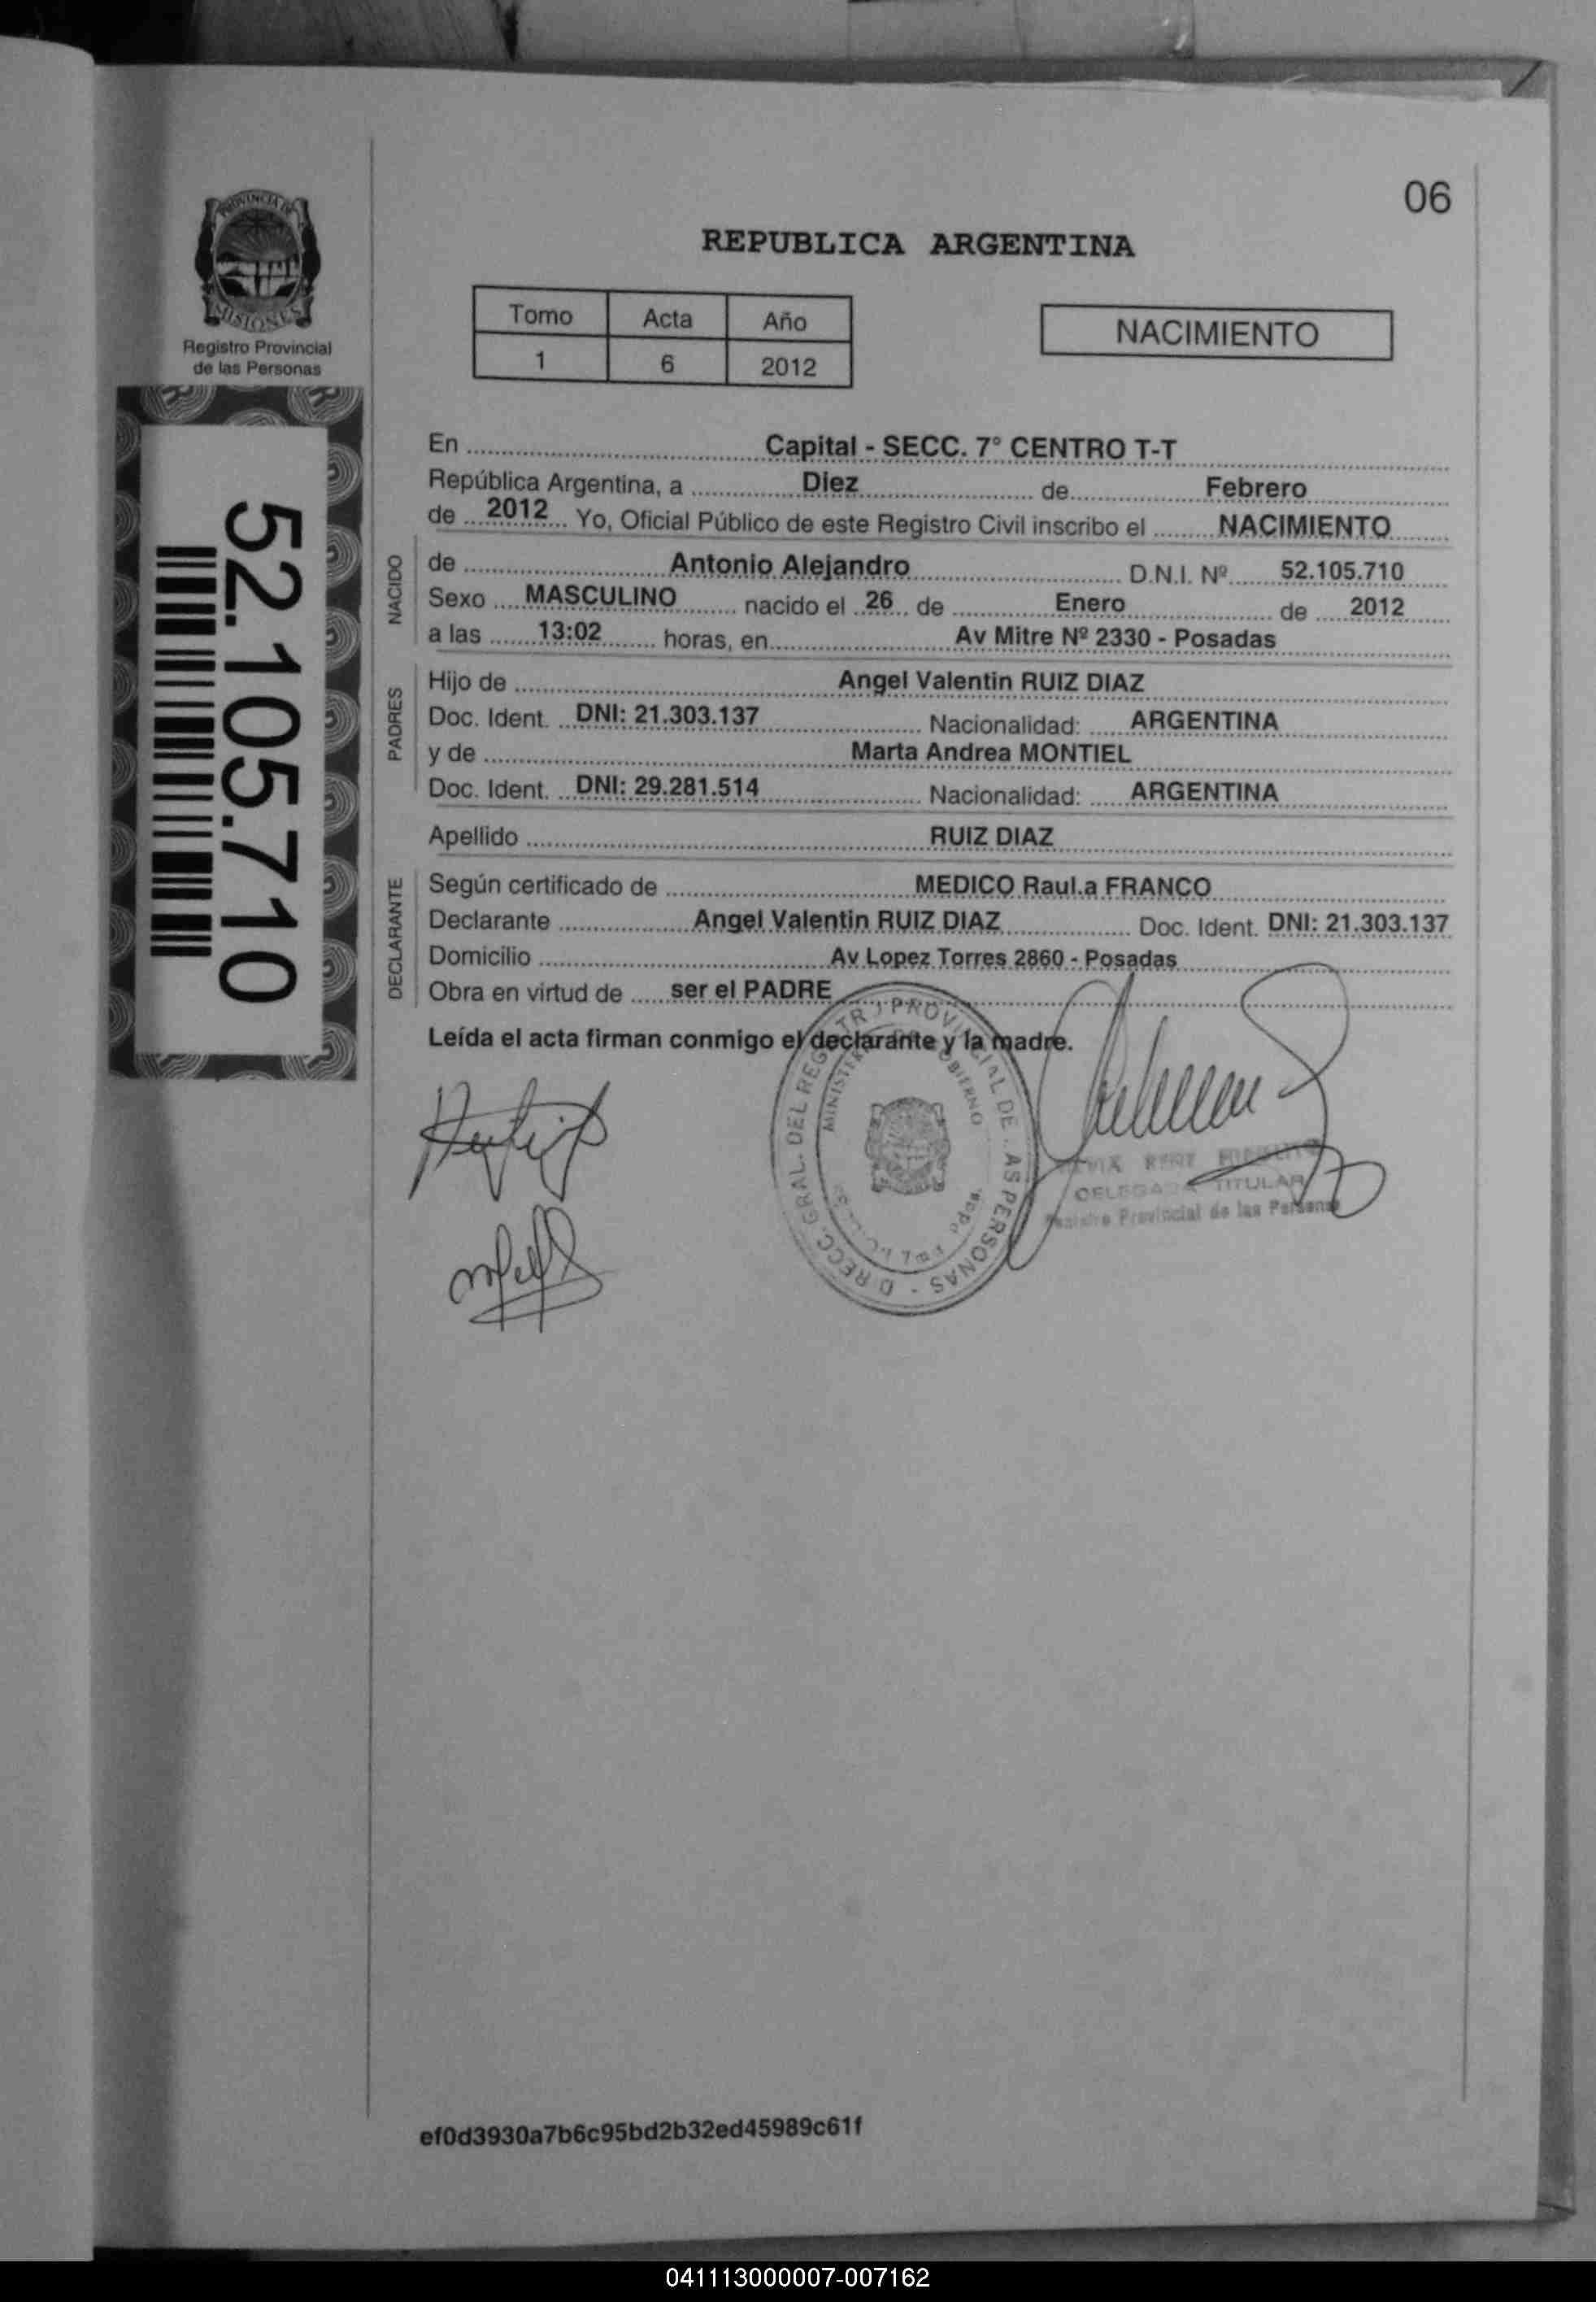 06
PROVINCIA DE
MISIONES
Registro Provincial
de las Personas
52.105.710
REPUBLICA ARGENTINA
Tomo Acta Año
1 6 2012
NACIMIENTO
En Capital - SECC. 7° CENTRO T-T
República Argentina, a Diez de Febrero
de 2012 Yo, Oficial Público de este Registro Civil inscribo el NACIMIENTO
NACIDO
de Antonio Alejandro D.N.I. Nº 52.105.710
Sexo MASCULINO nacido el 26 de Enero de 2012
a las 13:02 horas, en Av Mitre Nº 2330 - Posadas
PADRES
Hijo de Angel Valentin RUIZ DIAZ
Doc. Ident. DNI: 21.303.137 Nacionalidad: ARGENTINA
y de Marta Andrea MONTIEL
Doc. Ident. DNI: 29.281.514 Nacionalidad: ARGENTINA
Apellido RUIZ DIAZ
DECLARANTE
Según certificado de MEDICO Raul.a FRANCO
Declarante Angel Valentin RUIZ DIAZ Doc. Ident. DNI: 21.303.137
Domicilio Av Lopez Torres 2860 - Posadas
Obra en virtud de ser el PADRE
Leída el acta firman conmigo el declarante y la madre.
TITULAR
Provincial de las
ef0d3930a7b6c95bd2b32ed45989c61f
041113000007-007162